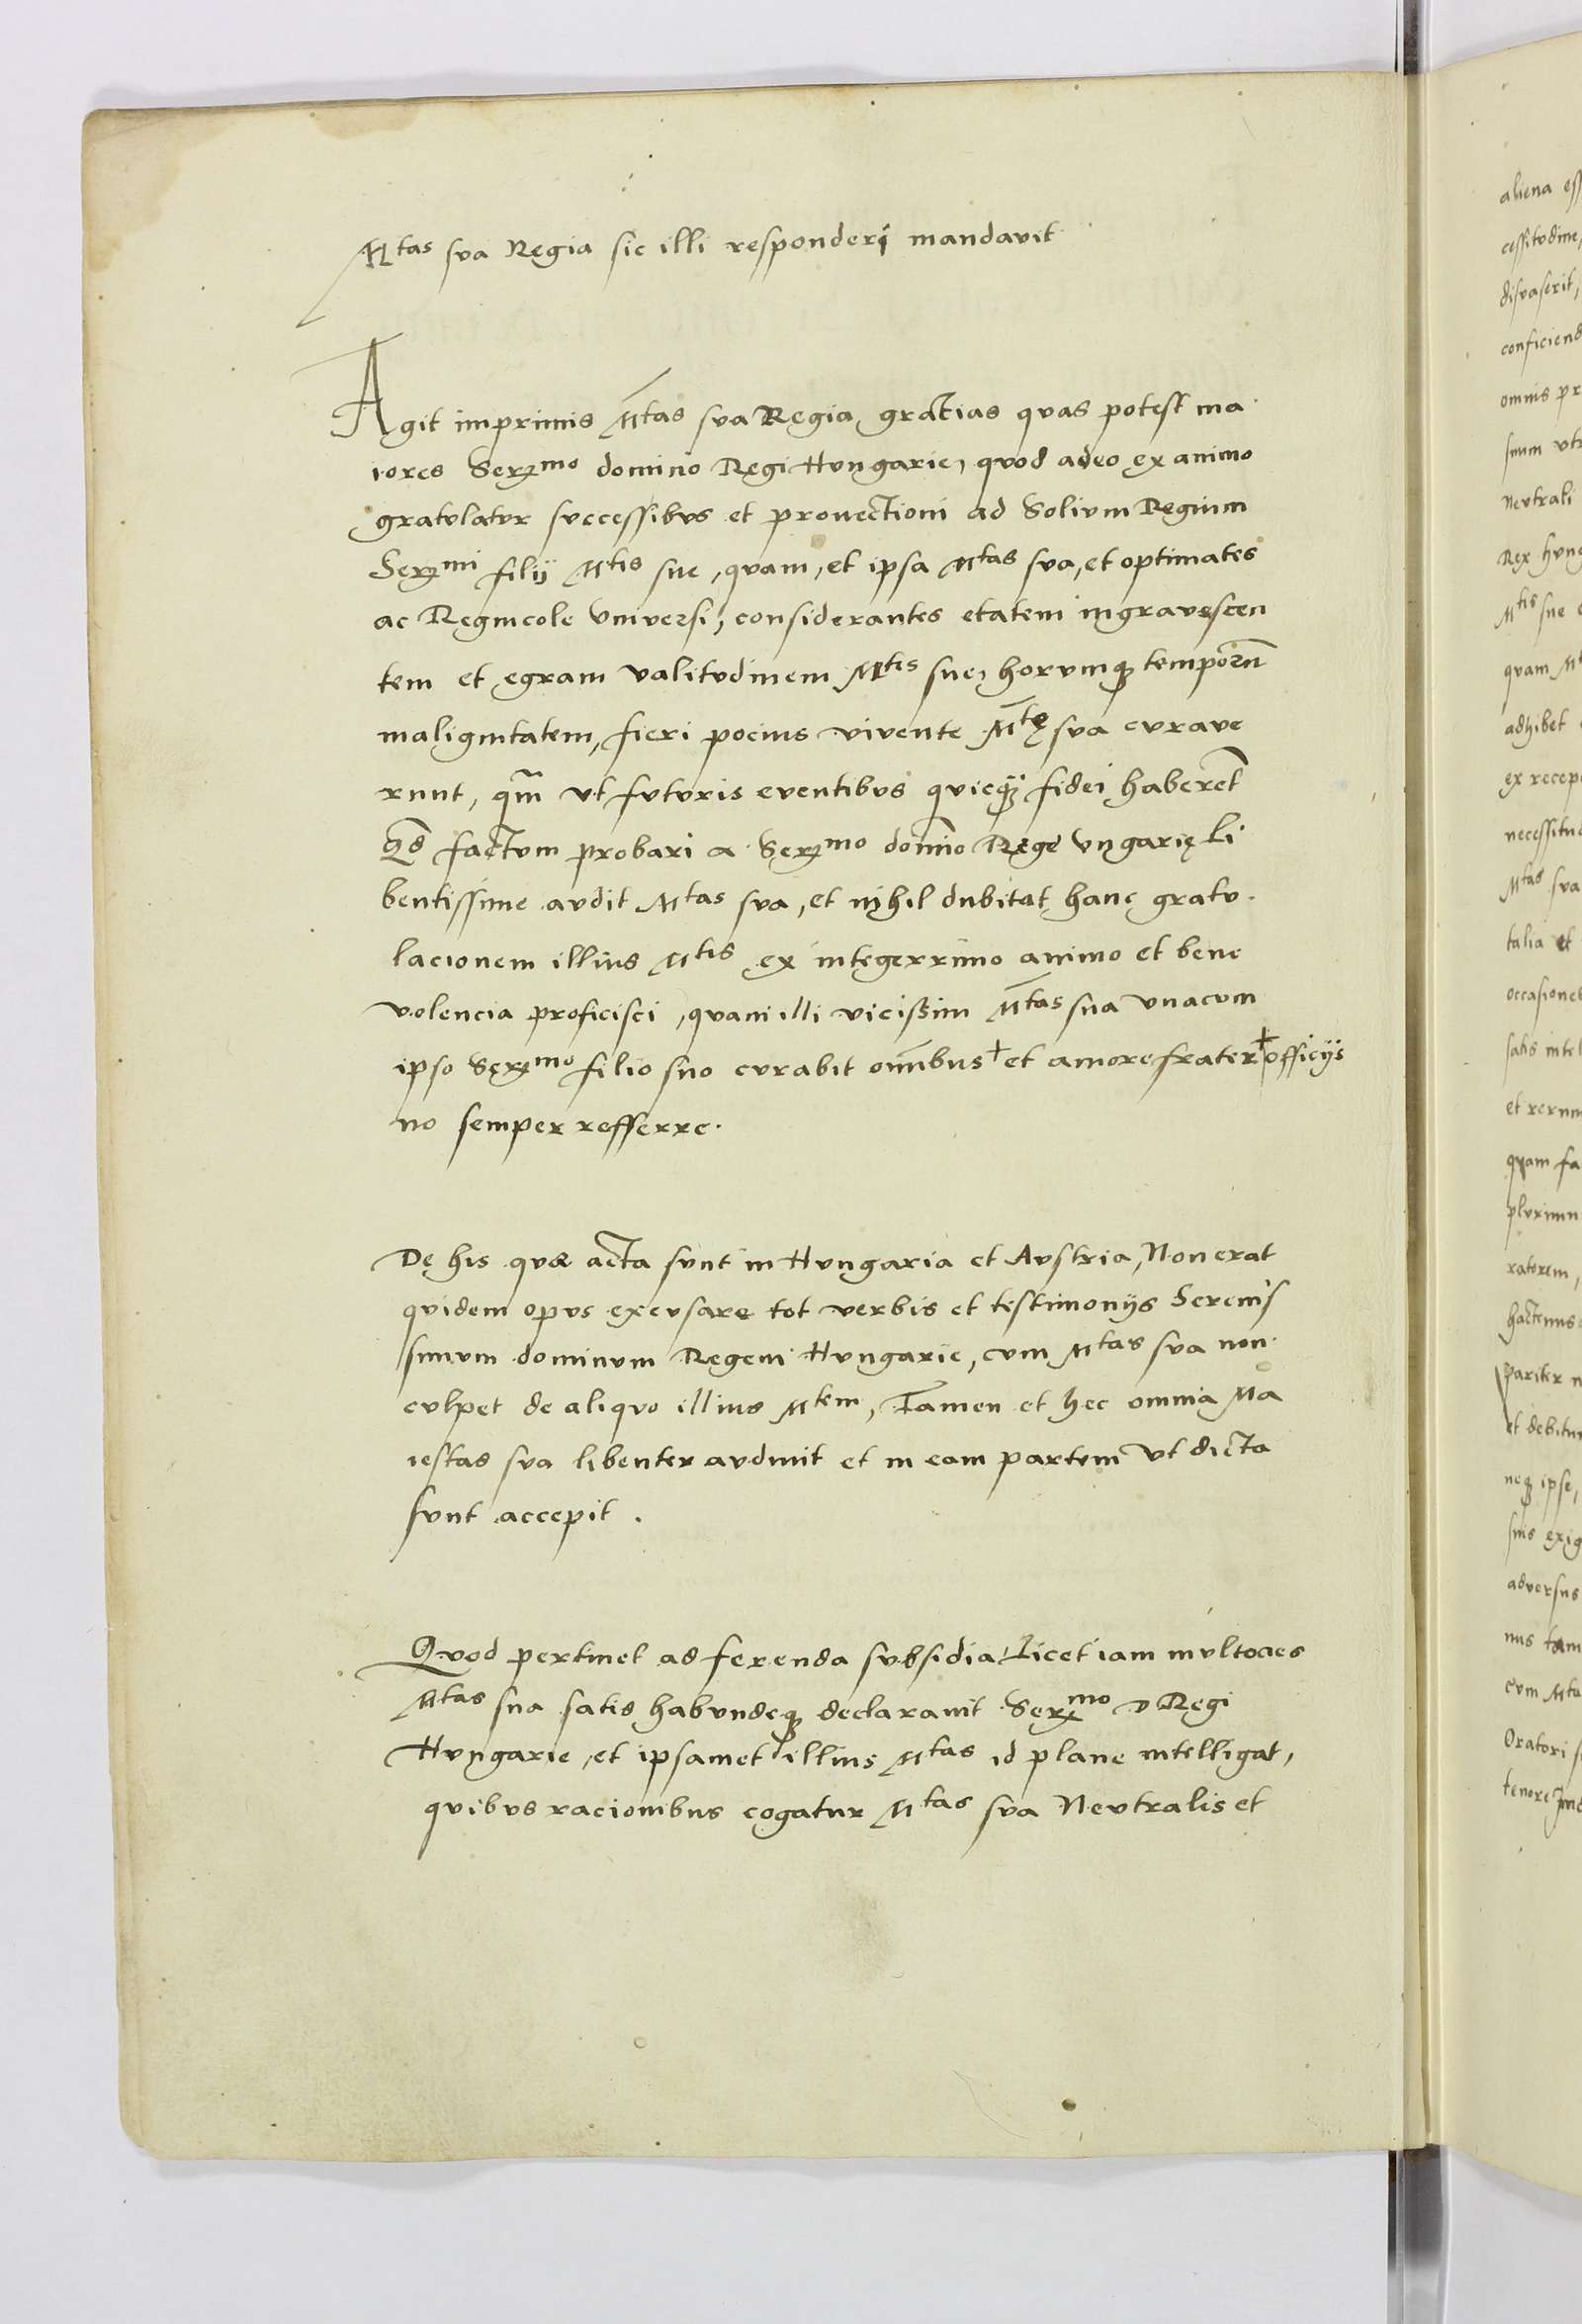 Mtas sva Regia sic illi responderi mandavit
Agit imprimis Mtas sva Regia gratias qvas potest ma
iores Sermo domino Regi Hvngarie, qvod adeo ex animo
gratvlatvr svccessibvs et prouectioni ad Solivm Regium
Sermi filij Mtis sue, qvam, et ipsa Mtas sva, et optimates
ac Regnicole Vniversi, considerantes etatem ingravescen
tem et egram valitvdinem Mtis sue, horvmq temporu
malignitatem, fieri pocius vivente Mte sva cvrave
runt, qm vt fvtvris eventibvs quicq fidei haberet
Qd factvm probari a Sermo domino Rege vngarię li
bentissime avdit Mtas sva, et nihil dubitat hanc gratv
lacionem illius Mtis ex integerrimo animo et bene
volencia proficisci, qvam illi vicissim Mtas sua vnacvm
ipso Sermo filio suo cvrabit omnibus + et amore frater + officijs
no semper refferre.
De his qvæ acta svnt in Hvngaria et Avstria, Non erat
qvidem opvs excvsare tot verbis et testimonijs Serenis
simvm dominvm Regem Hvngarie, cvm Mtas sva non
cvlpet de aliqvo illius Mtem, Tamen et hec omnia Ma
iestas sva libenter avdiuit et in eam partem vt dicta
svnt accepit.
Qvod pertinet ad ferenda svbsidia Licet iam mvltocies
Mtas sua satis habvndeq declarauit Sermo D Regi
Hvngarie, et ipsamet illius Mtas id plane intelligat,
qvibvs racionibus cogatur Mtas sva Nevtralis et
aliena ess
cessitvdine,
disvaserit,
conficiend
omnis pr
suum vtr
Nevtrali
Rex hvng
Mtis sue
qvam Mt
adhibet
ex recep
necessitud
Mtas sva
talia et
occasione
satis intel
et rerum
qvam fa
plvrimu
ratorem,
hactenus
pariter n
et debitu
neq ipse,
suis exig
adversus
nus tam
cvm Mta
Oratori s
tenore